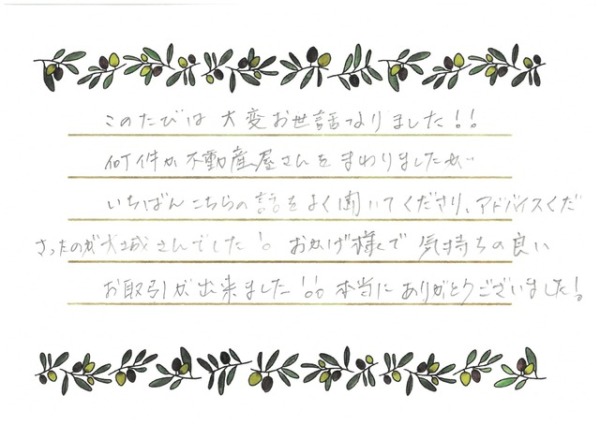 このたびは 大変お世話なりました!!
何件か不動産屋さんをまわりましたが…
いちばんこちらの話をよく聞いてくださり、アドバイスくだ
さったのが大城さんでした! おかげ様で 気持ちの良い
お取引が出来ました!! 本当に ありがとうございました!